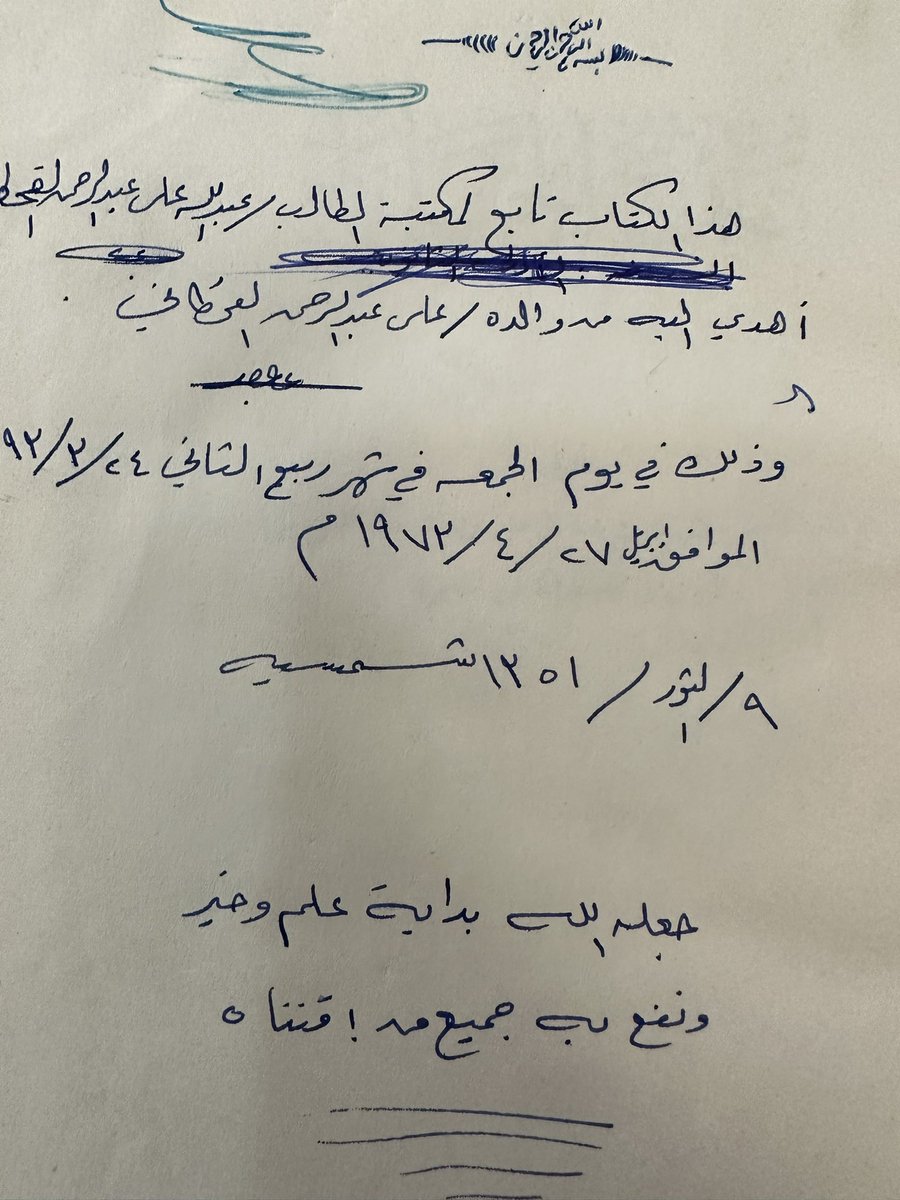 بسم الله الرحمن الرحيم
هذا الكتاب تابع لمكتبة الطالب / عبدالله علي عبدالرحمن القحطا
أهدي إليه من والده / علي عبدالرحمن القحطاني
وذلك في يوم الجمعه في شهر ربيع الثاني ٢٤/٣/٩٣
الموافق إبريل ٢٧/٤/١٩٧٣ م
٩/الثور/١٣٥١ شمسيه
جعله الله بداية علم وخير
ونفع به جميع من اقتناه